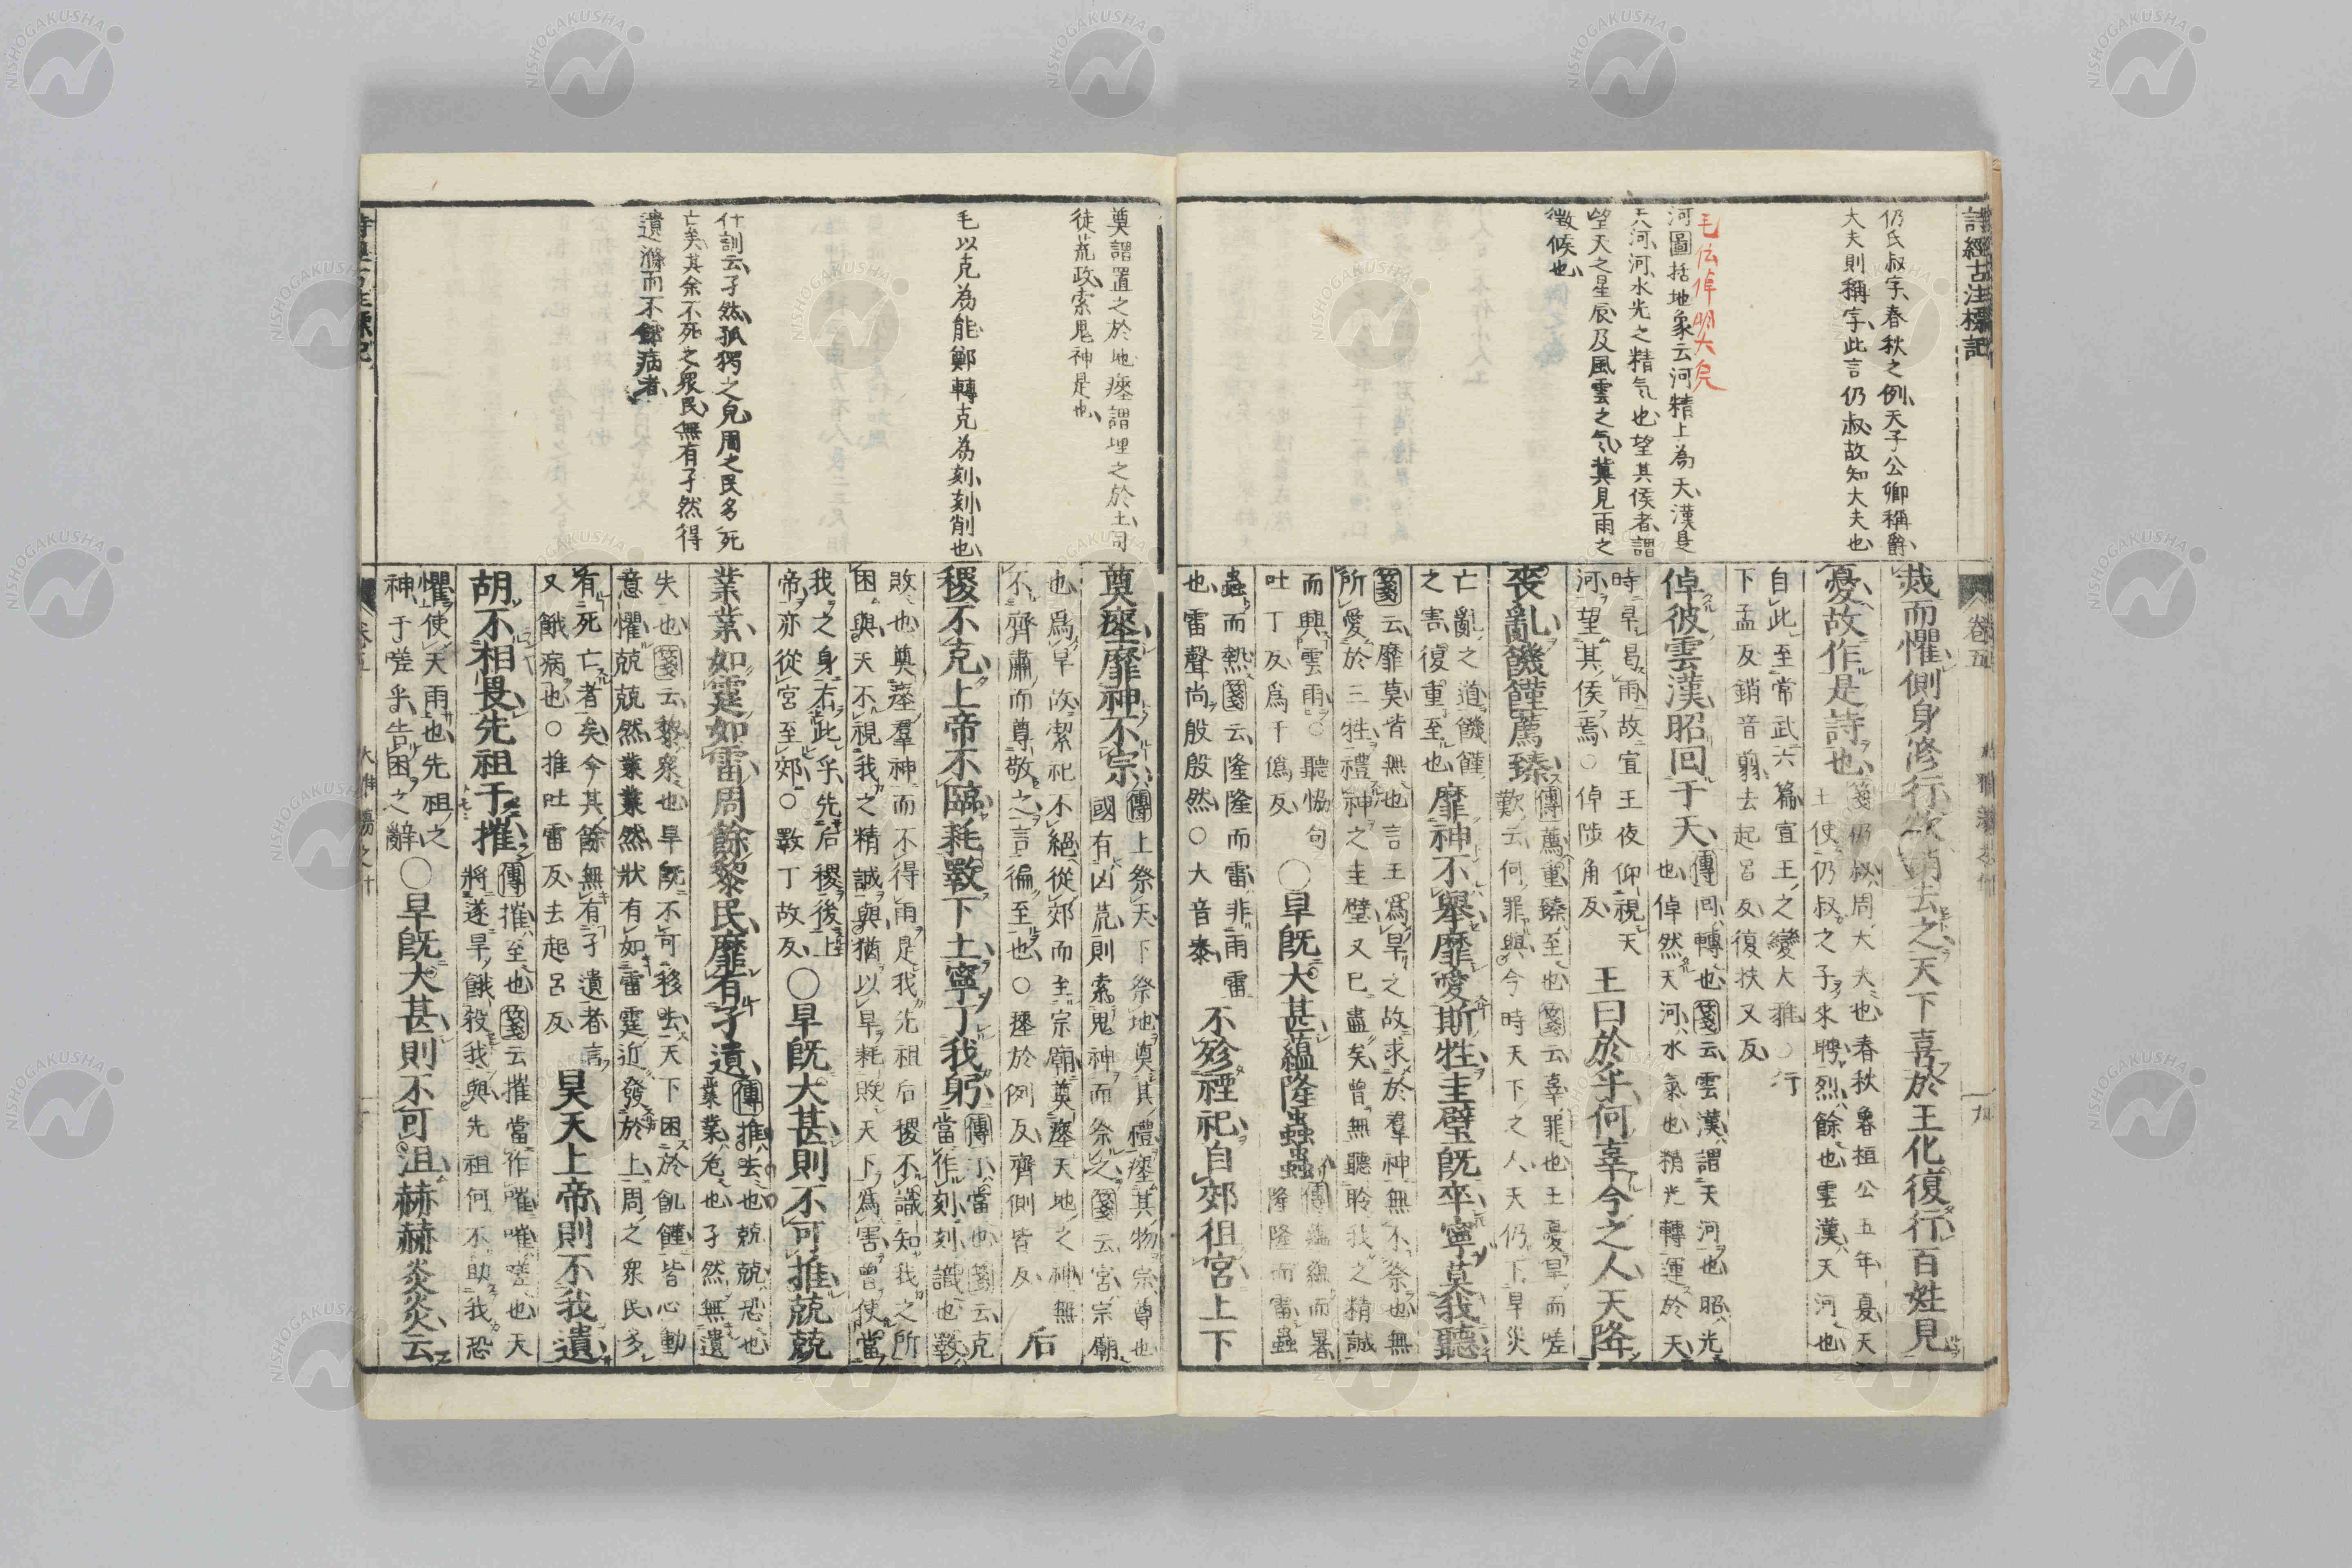 詩經古注標記
仍氏叔字、春秋之例、天子公卿稱爵、
大夫則稱字、此言仍叔、故知大夫也
毛伝倬明大皃
河圖括地象云河精上為天漢是
天河、河水光之精気也、望其侯者、謂
望天之星辰及風雲之気、冀見雨之
徴候也
卷五
烖而懼側身修行欲銷去之天下喜於王化復行百姓見
憂故作是詩也
箋仍叔周大夫也春秋魯桓公五年夏天
王使仍叔之子來聘烈餘也雲漢天河也
自此至常武六篇宣王之變大雅○行
下孟反銷音霄去起呂反復扶又反
倬彼雲漢昭回于天
傳回轉也箋云雲漢謂天河也昭光
也倬然天河水氣也精光轉運於天
時旱曷雨故宣王夜仰視天
河望其侯焉○倬陟角反
王曰於乎何辜今之人天降
喪亂饑饉薦臻
傳薦重臻至也箋云辜罪也王憂旱而嗟
歎云何罪與今時天下之人天仍下旱災
亡亂之道饑饉
之害復重至也
靡神不舉靡愛斯牲圭璧既卒寧莫我聽
箋云靡莫皆無也言王爲旱之故求於羣神無不祭也無
所愛於三牲禮神之圭璧又已盡矣曾無聽聆我之精誠
而興雲雨○聽恊句
吐丁反爲于僞反
○旱既大甚蘊隆蟲蟲
傳蘊蘊而暑
隆隆而雷蟲
蟲而熱箋云隆隆而雷非雨雷
也雷聲尚殷殷然○大音泰
不殄禋祀自郊徂宮上下
奠謂置之於地瘞謂埋之於土司
徒荒政索鬼神是也、
毛以克為能鄭轉克為刻、刻削也、
什訓云、孑然孤獨之皃、周之民多死
亡矣、其余不死之衆民、無有孑然得
遺滌而不餓病者、
奠瘞靡神不宗
傳上祭天下祭地奠其禮瘞其物宗尊也
國有凶荒則索鬼神而祭之箋云宮宗廟
也爲旱故潔祀不絕從郊而至宗廟奠瘞天地之神無
不齊肅而尊敬之言徧至也○瘞於例反齊側皆反
后
稷不克上帝不臨耗斁下土寧丁我躬
傳丁當也箋云克
當作刻刻識也斁
敗也奠瘞羣神而不得雨是我先祖后稷不識知我之所
困與天不視我之精誠與猶以旱耗敗天下爲害曾使當
我之身有此乎先后稷後上
帝亦從宮至郊○斁丁故反
○旱既大甚則不可推兢兢
業業如霆如雷周餘黎民靡有孑遺
傳推去也兢兢恐也
業業危也孑然無遺
失也箋云黎衆也旱既不可移去天下困於飢饉皆心動
意懼兢兢然業業然狀有如雷霆近發於上周之衆民多
有死亡者矣今其餘無有孑遺者言
又餓病也○推吐雷反去起呂反
昊天上帝則不我遺
胡不相畏先祖于摧
傳摧至也箋云摧當作嗺嗺嗟也天
將遂旱餓殺我與先祖何不助我恐
懼使天雨也先祖之
神于嗟乎告困之辭
○旱既大甚則不可沮赫赫炎炎云